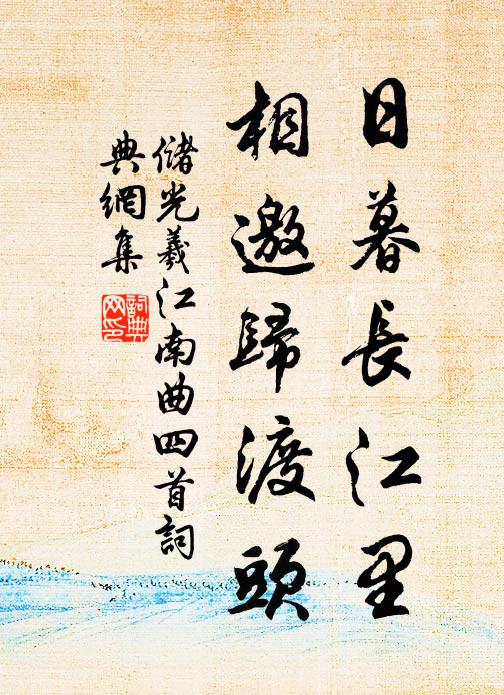 日暮長江里
相邀歸渡頭
儲光羲江南曲四首詞
典網集
詞典
网印